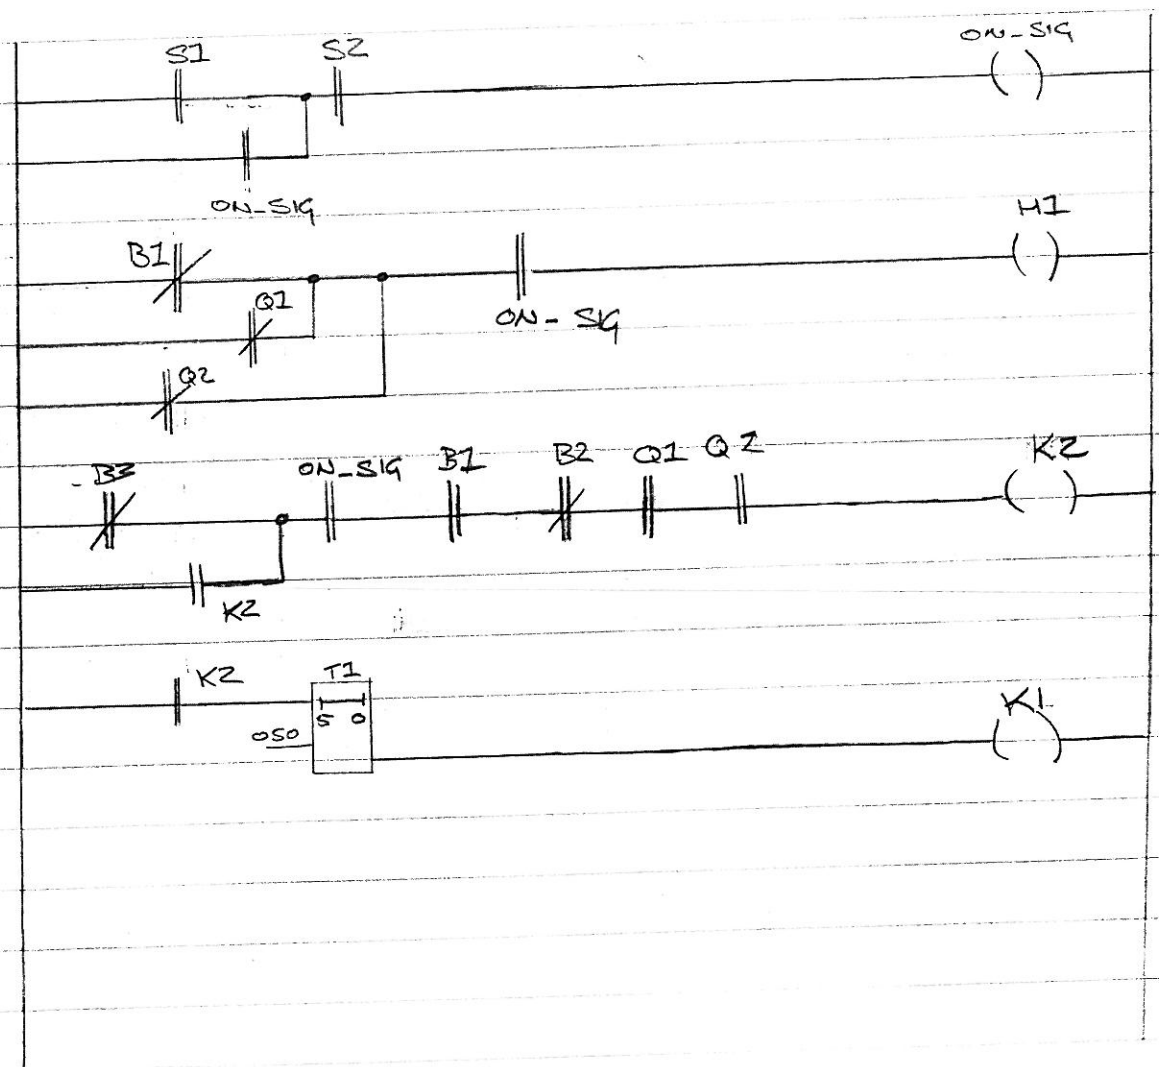 S1 S2 ON-SIG
ON-SIG
B1 H1
Q1
ON-SIG
Q2
B3 ON-SIG B1 B2 Q1 Q2 K2
K2
K2 T1 K1
5 0
050